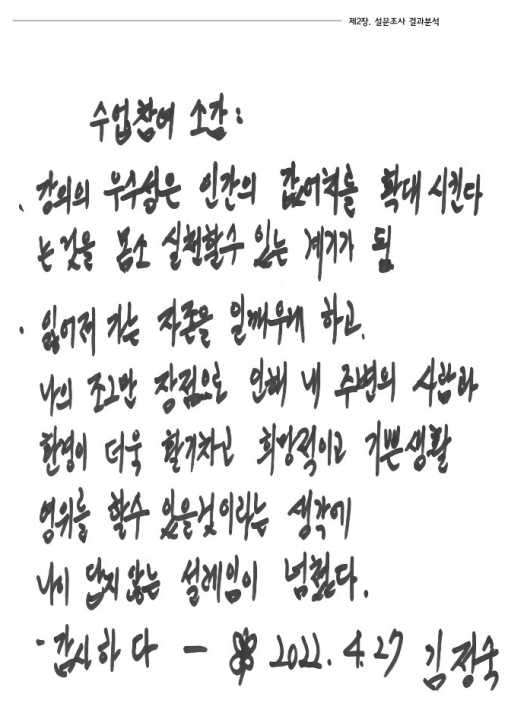 제2장. 설문조사 결과분석
수업참여 소감:
. 강의의 우수성은 인간의 값어치를 확대 시킨다
는 것을 몸소 실천할수 있는 계기가 됨
· 잃어져 가는 자존을 일깨우게 하고.
나의 조그만 장점으로 인해 내 주변의 사람과
환경이 더욱 활기차고 희망적이고 기쁜생활
영위를 할수 있을것이라는 생각에
나이 답지 않는 설레임이 넘쳤다.
· 감사하다 - 2022. 4. 27 김정숙